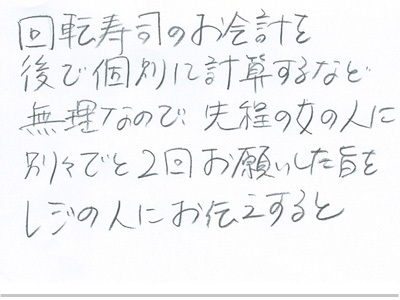 回転寿司のお会計を
後で個別に計算するなど
無理なので、先程の女の人に
別々でと2回お願いした旨を
レジの人にお伝えすると